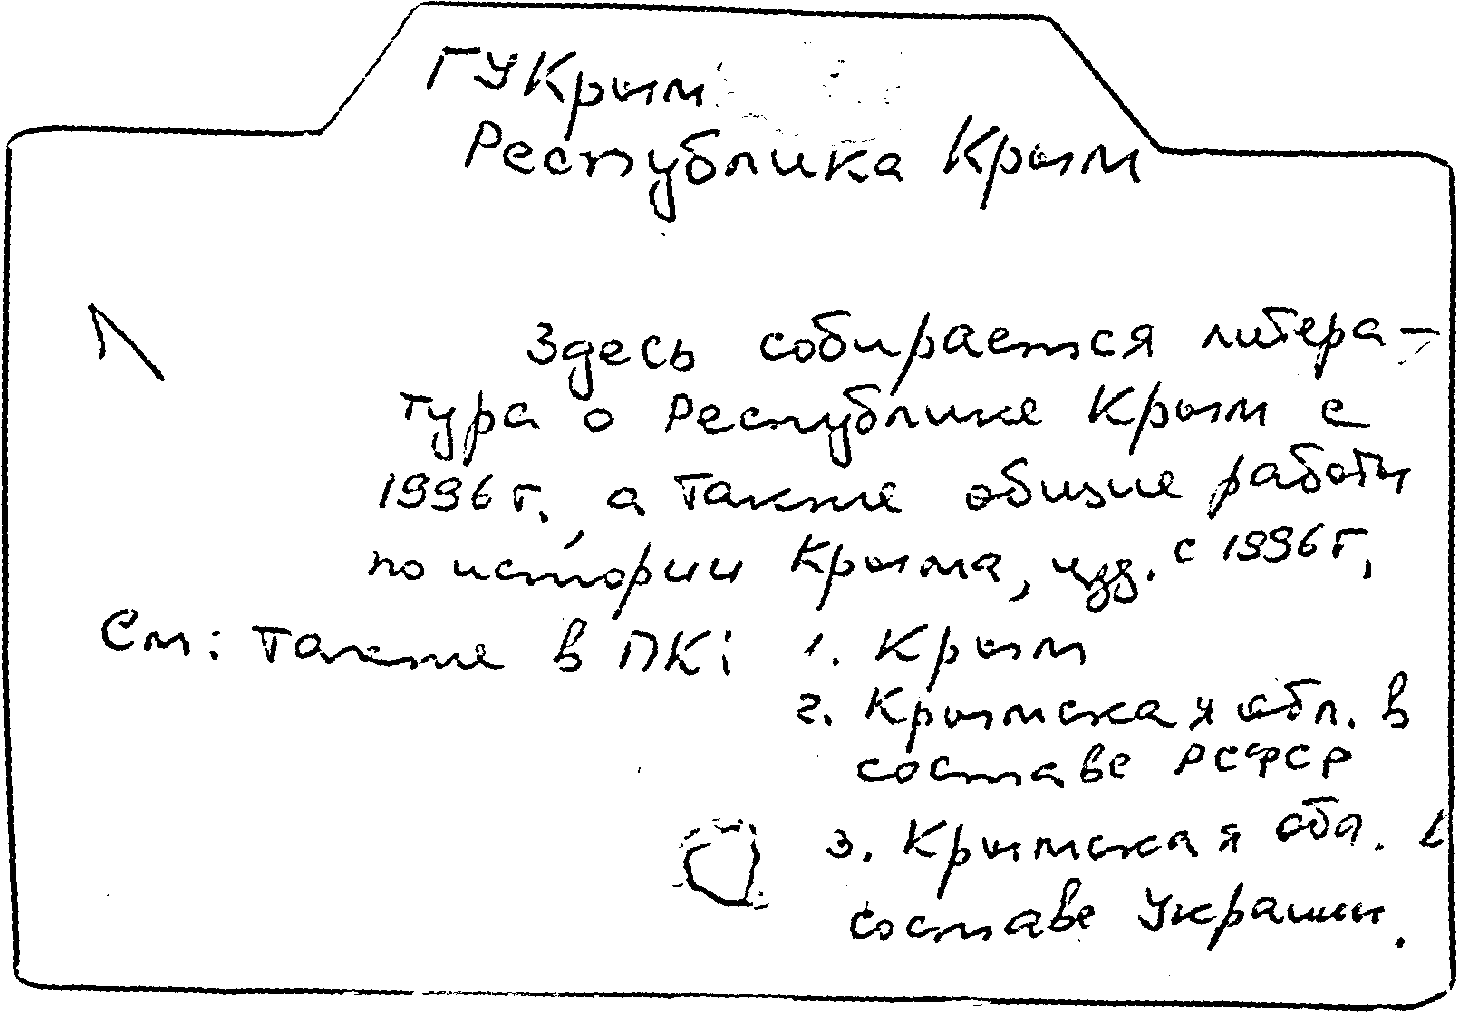 ГУКрым
Республика Крым
Здесь собирается литера-
тура о Республике Крым с
1996 г., а также общие работы
по истории Крыма, изд. с 1996 г.
См: также в ПК: 1. Крым
2. Крымская обл. в
составе РСФСР
3. Крымская обл. в
составе Украины.